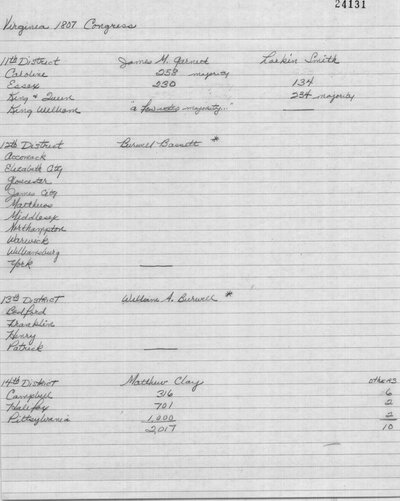 24131
Virginia 1807 Congress
11th District James M. Garnett Larkin Smith
Caroline 258 majority
Essex 230 134
King & Queen 234 majority
King William "a few votes majority..." ——
12th District Burwell Bassett *
Accomack
Elizabeth City
Gloucester
James City
Matthews
Middlesex
Northampton
Warwick
Williamsburg
York ——
13th District William A. Burwell *
Bedford
Franklin
Henry
Patrick ——
14th District Matthew Clay others
Campbell 316 6
Halifax 701 2
Pittsylvania 1,000 2
2,017 10